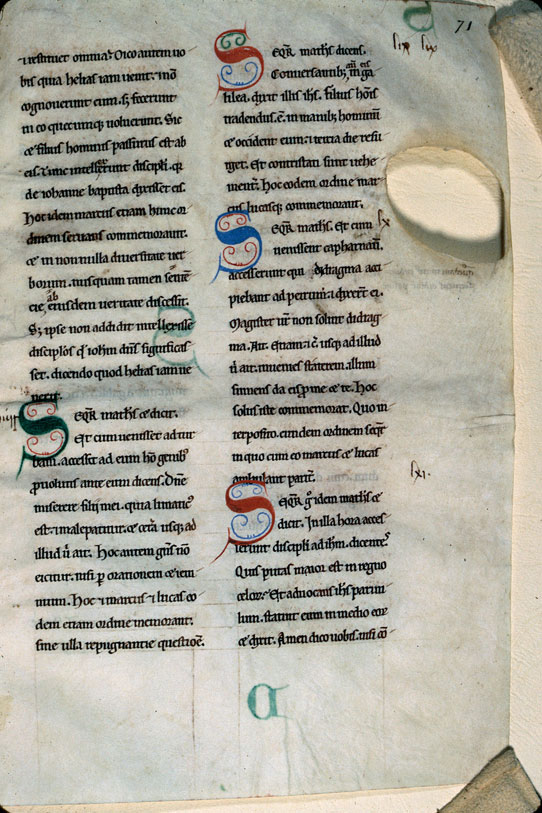 ⁊ restituet omnia? Dico autem uo
bis quia helias iam uenit. ⁊ nō
cognouerunt eum. sꝫ fecerunt
in eo quecumqꝫ uoluerunt. Sic
& filius hominis passurus est ab
eis. Tunc intellexerunt discipuli. qꝫ
de iohanne baptista dixisset eis.
Hoc idem marcus etiam hunc or
dinem seruans commemorat.
& in non nulla diuersitate uer
borum. nusquam tamen
ab eiusdem ueritate discessit.
Sꝫ ipse non addidit intellexisse
discipłos qđ iohēm dn̄s significas
set. dicendo quod helias iam ue
nerit.
Seqr̄ matħs & dicit.
Et cum uenisset ad tur
bam. accessit ad eum hō genibꝫ
prouolutus ante eum dicens. Dn̄e
miserere filij mei. quia lunaticꝰ
est. ⁊ male patitur. & cet̄a usqꝫ ad
illud ū ait. Hoc autem genꝰ nō
eicitur. nisi ꝑ orationem & ieiu
nium. Hoc ⁊ marcus ⁊ lucas eo
dem etiam ordine memorant.
sine ulla repugnantie questiōē.
71
lix lix
Seqr̄ matħs dicens.
Conuersantibꝫ aūt eis in ga
lilea. dixit illis iħs. Filius hōis
tradendus. ē. in manibꝫ hominū
& occident eum. ⁊ tercia die resu
rget. Et contristati sunt uehe
ment̄. Hoc eodem ordine mar
cus lucasqꝫ commemorant.
lx
Seqr̄ matħs. Et cum
uenissent capharnaū.
accesserunt qui didragma acci
piebant ad petrum. ⁊ dixer̄t ei.
Magister ur̄ non soluit didrag
ma. Ait. Etiam. ⁊ c̄ usqꝫ ad illud
ū ait. inuenies staterem. illum
sumens da eis ꝓ me & te. Hoc
solus iste commemorat. Quo in
terposito. eundem ordinem seqr̄
in quo cum eo marcus & lucas
ambulant parit̄.
lxi.
Seqr̄ gͦ idem matħs &
dicit. In illa hora acces
serunt discipłi ad iħm. dicentēs
Quis putas maior est in regno
celor̄? Et aduocans iħs paruu
lum. statuit eum in medio eor̄
& dixit. Amen dico uobis. nisi cō
a